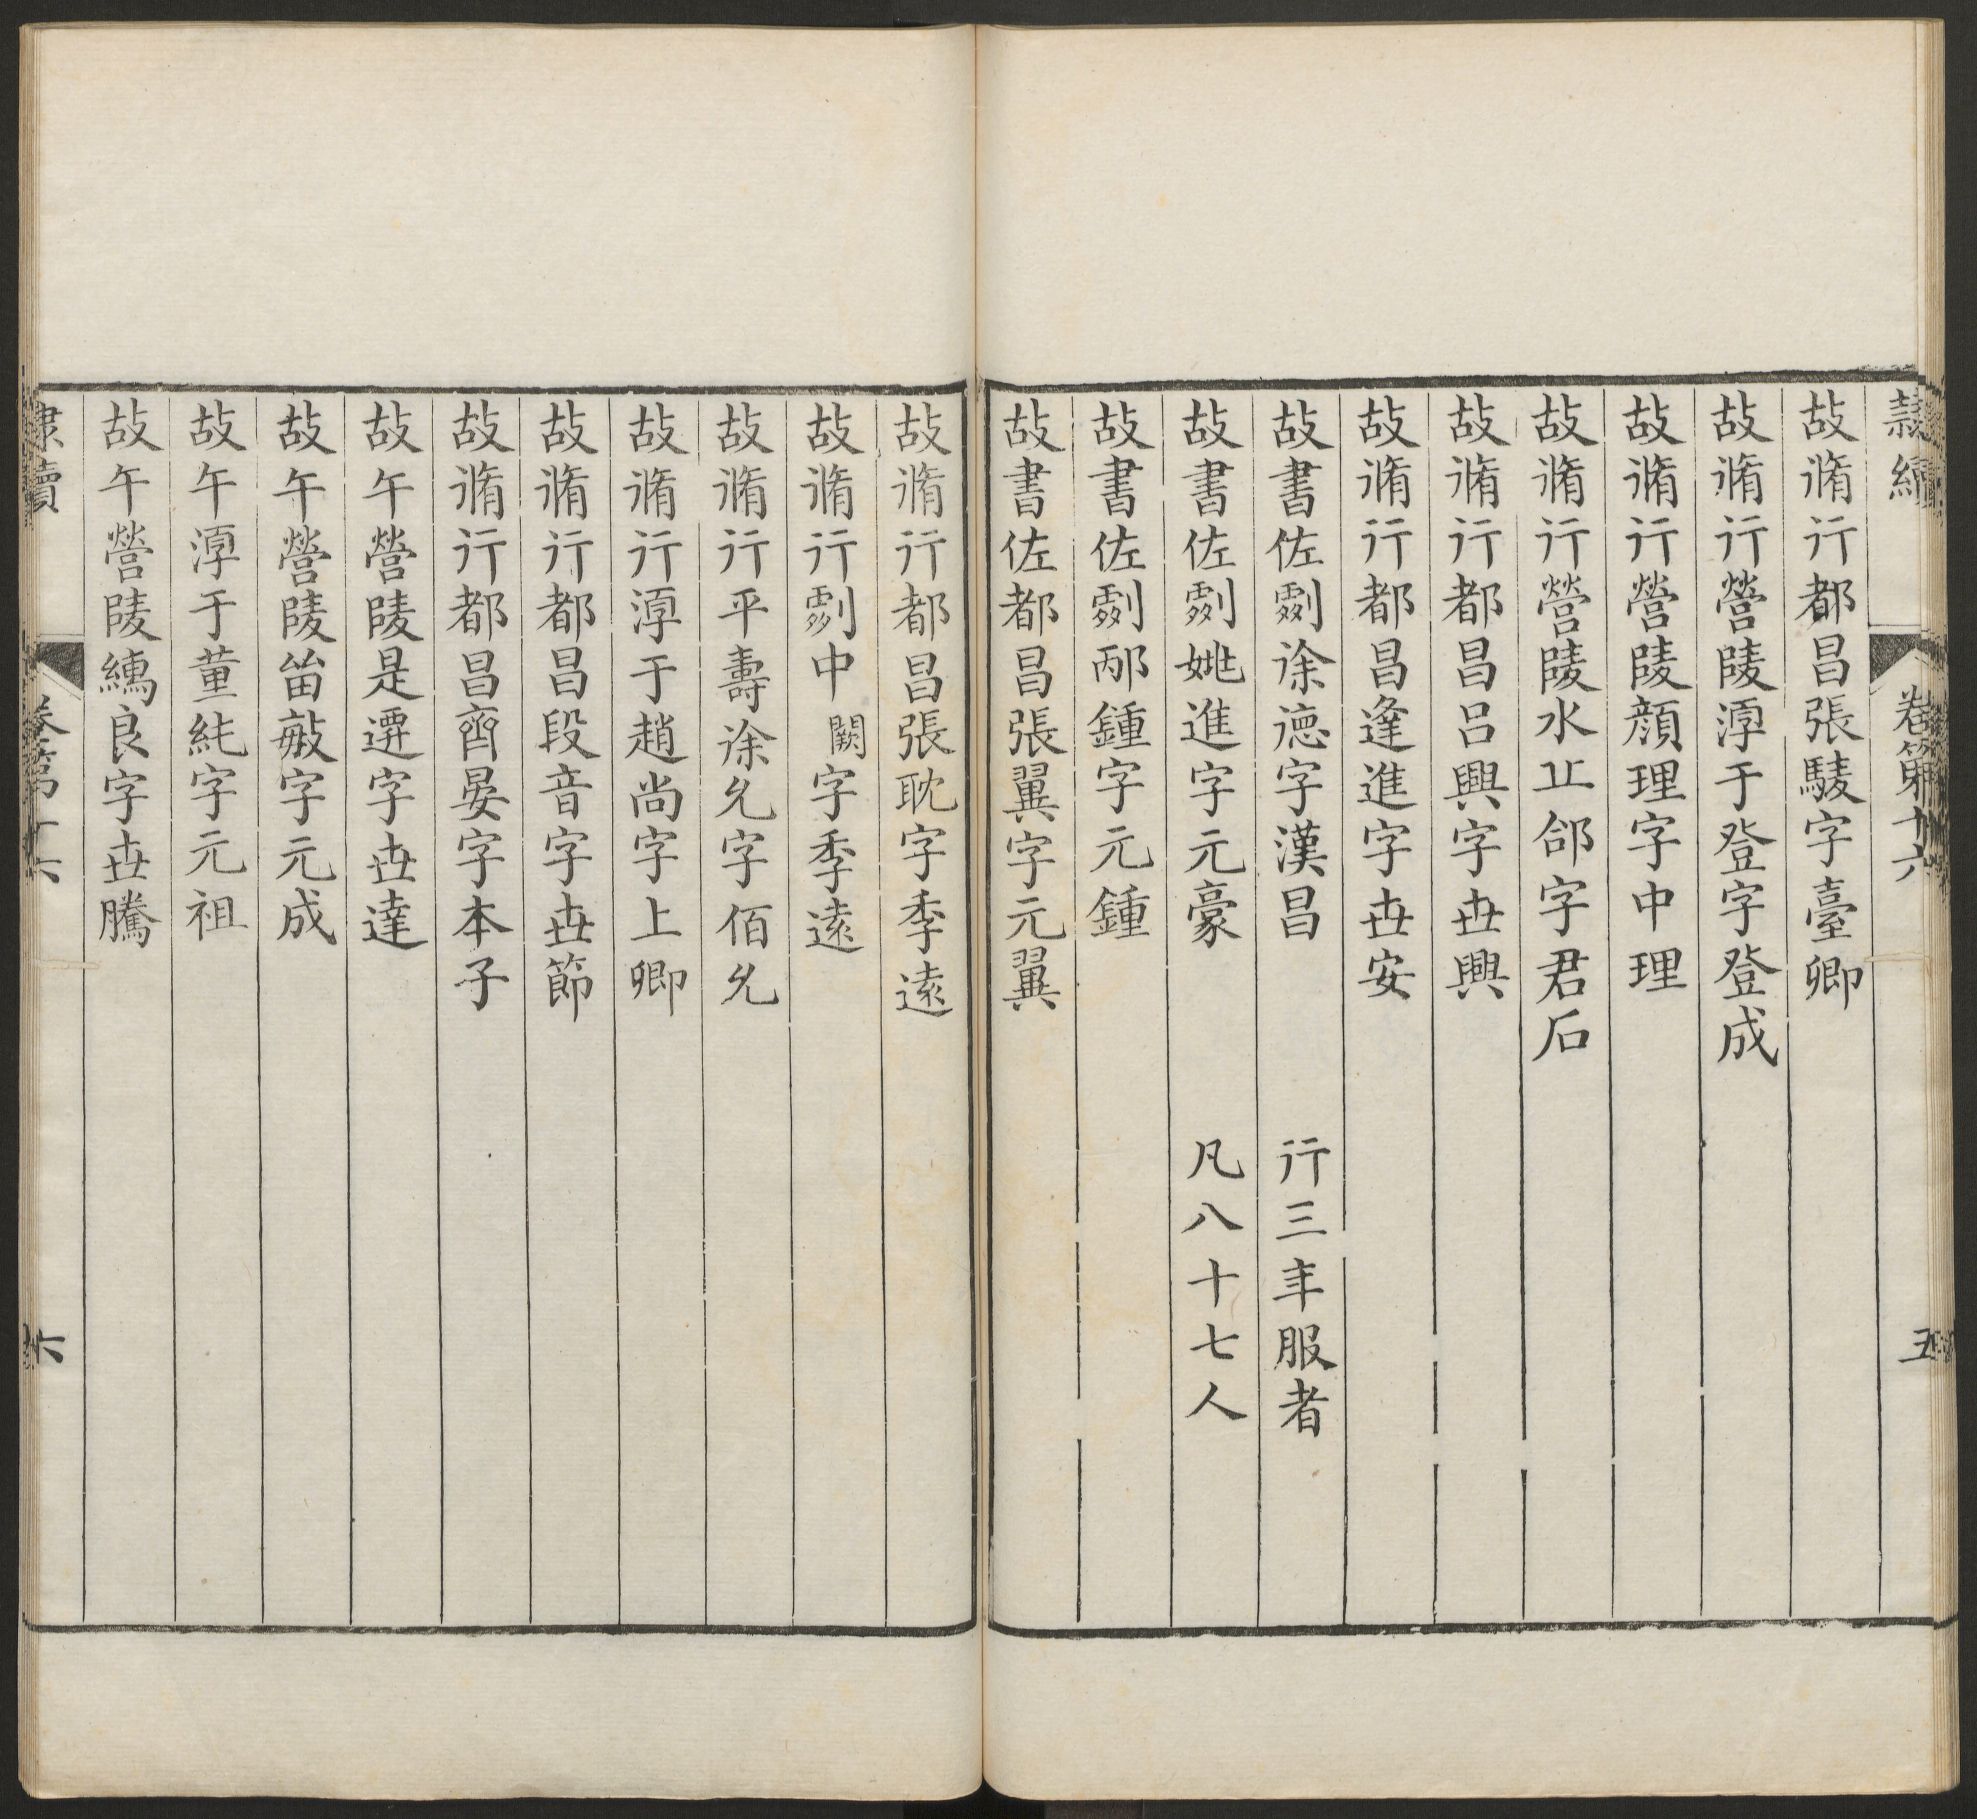 隸續 卷第十六 五
故脩行都昌張駿字臺卿
故脩行營陵淳于登字登成
故脩行營陵顏理字中理
故脩行營陵水丘郃字君石
故脩行都昌呂興字世興
故脩行都昌逢進字世安
故書佐劇徐德字漢昌 行三年服者
故書佐劇姚進字元豪 凡八十七人
故書佐劇邴鍾字元鍾
故書佐都昌張翼字元翼
故脩行都昌張耽字季遠
故脩行劇中闕字季遠
故脩行平壽徐允字佰允
故脩行淳于趙尚字上卿
故脩行都昌段音字世節
故脩行都昌齊晏字本子
故午營陵是遷字世達
故午營陵留敏字元成
故午淳于董純字元祖
故午營陵繡良字世騰
隸續 卷第十六 六